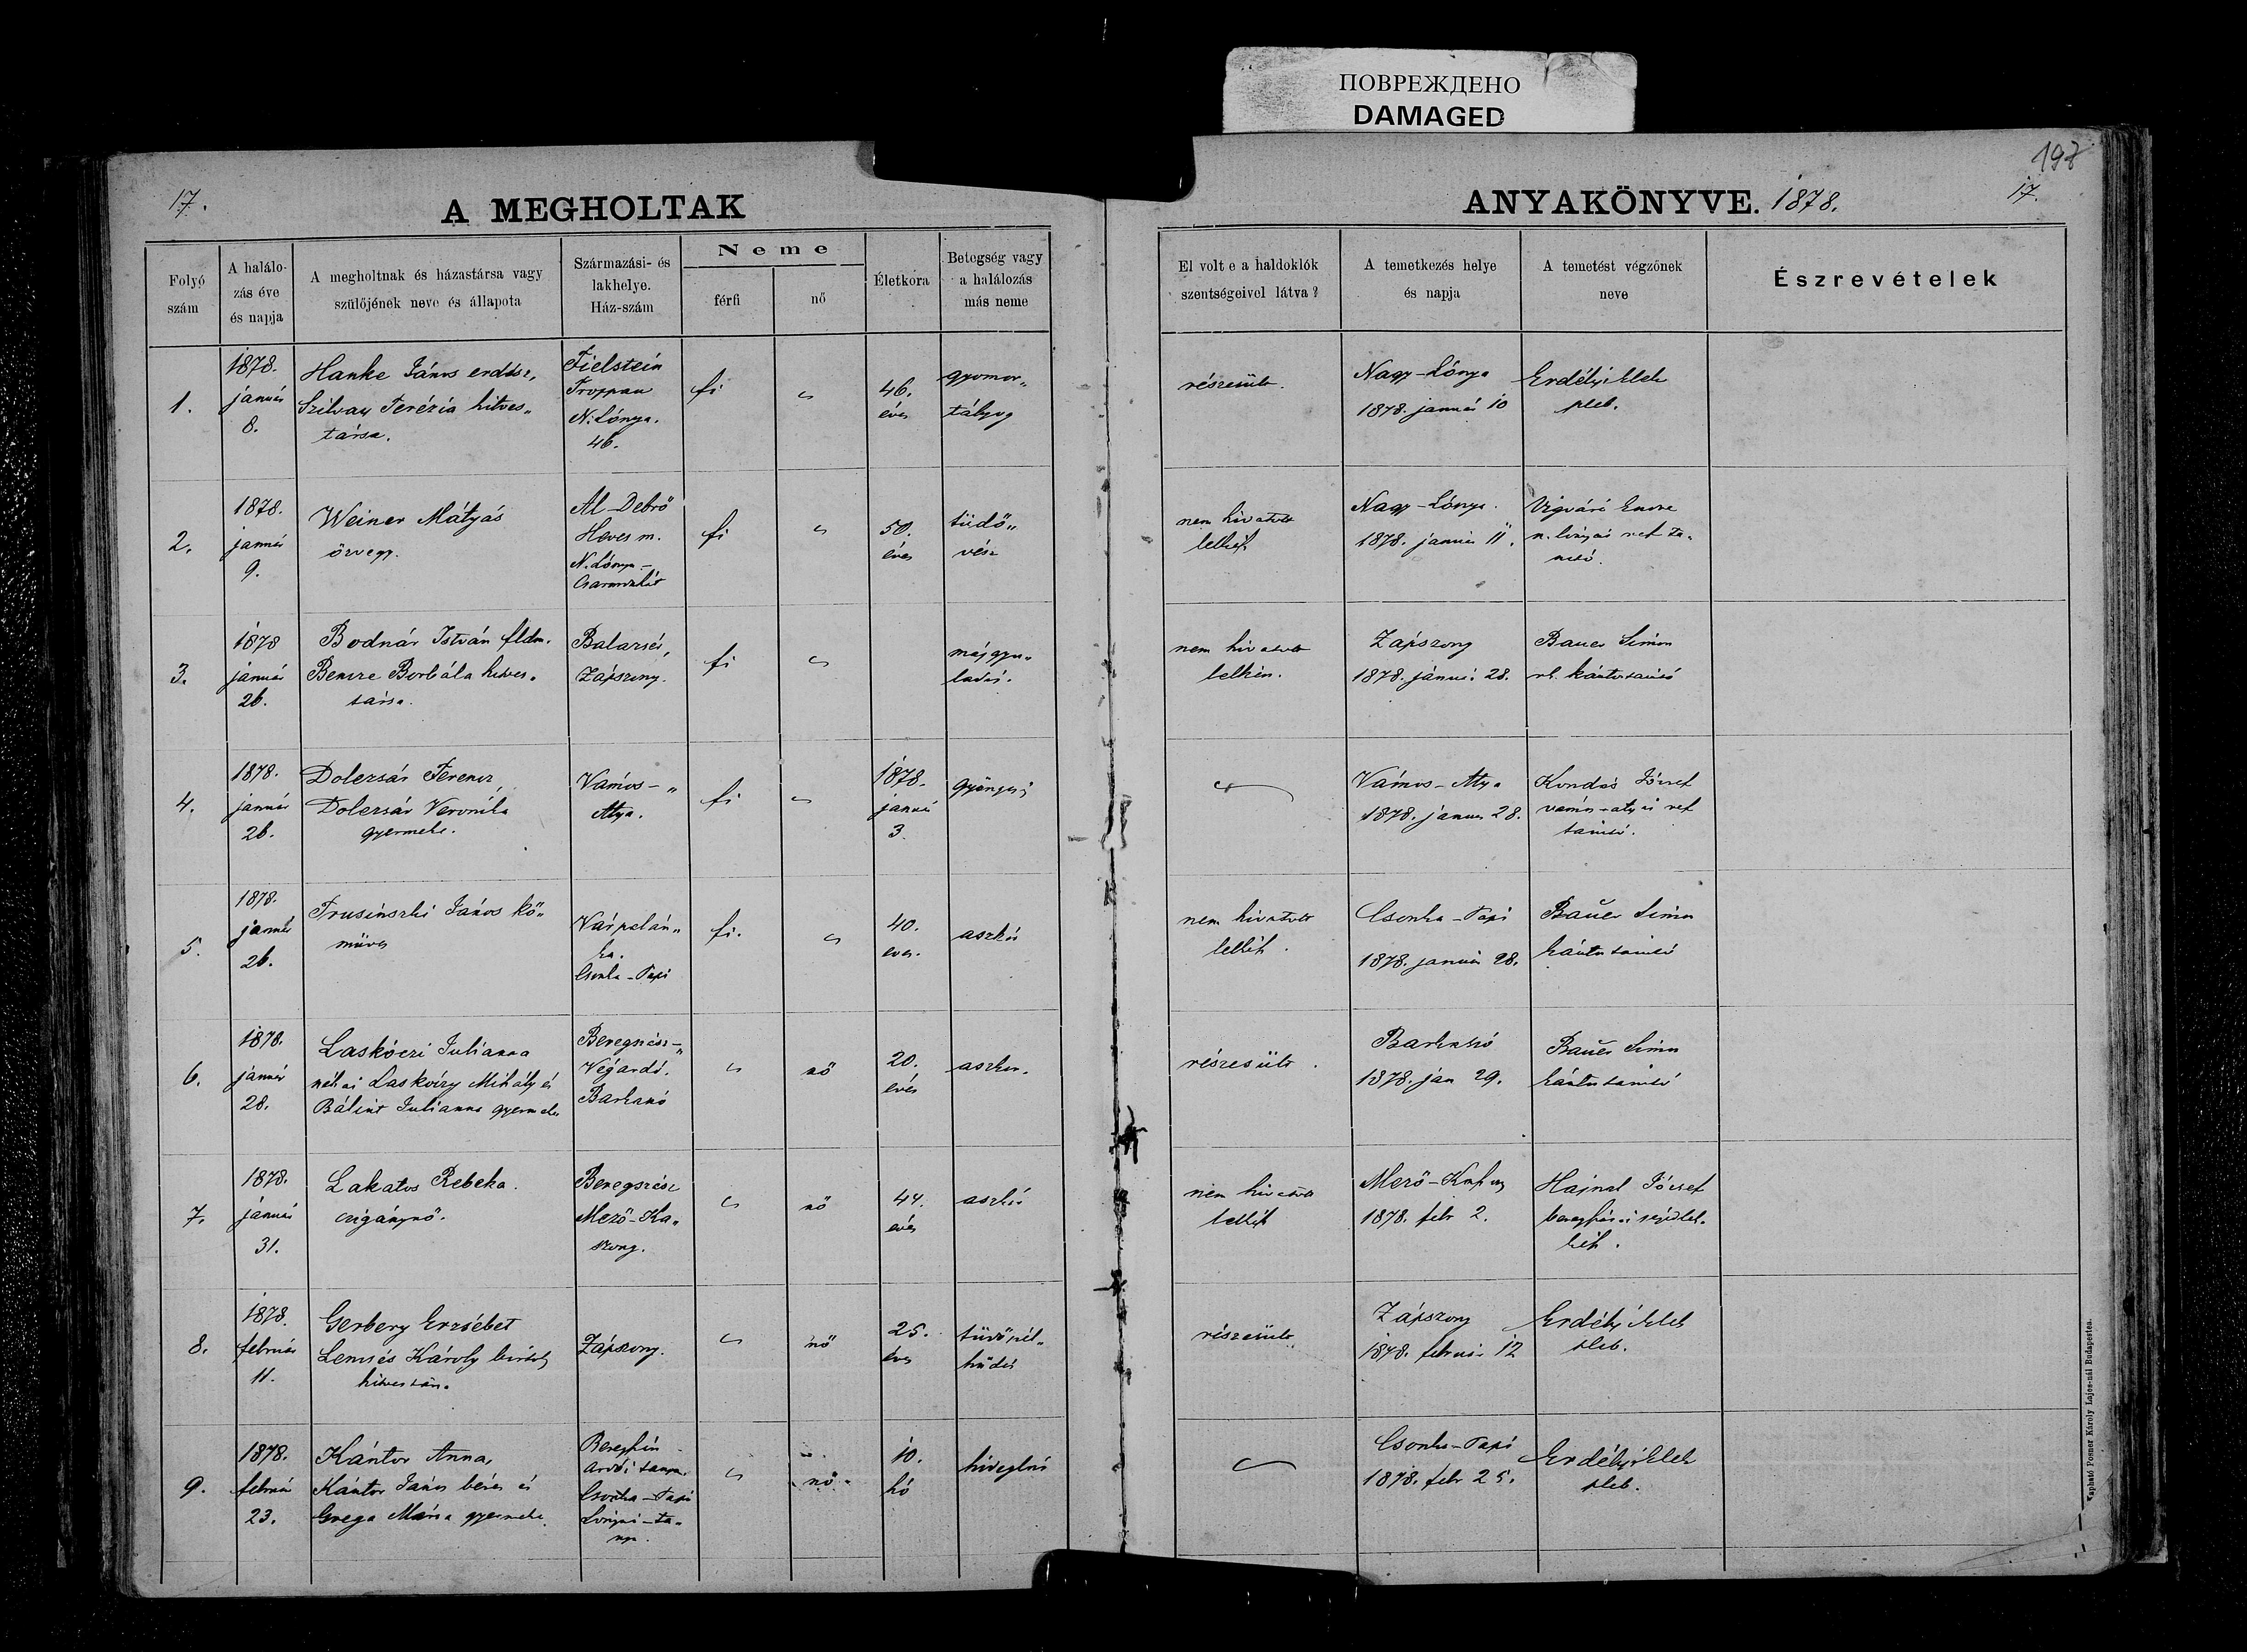 ПОВРЕЖДЕНО
DAMAGED
198
17.
17.
A MEGHOLTAK
ANYAKÖNYVE. 1878.
Folyó szám
A halálo-
zás éve
és napja
A megholtnak és házastársa vagy
szülőjének neve és állapota
Származási- és
lakhelye.
Ház-szám
Neme
férfi
nő
Életkora
Betegség vagy
a halálozás
más neme
El volt e a haldoklók
szentségeivel látva?
A temetkezés helye
és napja
A temetést végzőnek
neve
Észrevételek
1.
1878.
január
8.
Hanke János erdész,
Szilvay Terézia hitves„
társa.
Fielstein
Troppau
N. Lónya.
46.
fi
46.
éves
gyomor„
tályog
részesült.
Nagy-Lónya
1878. január 10
Erdélyi Elek
pleb.
2.
1878.
január
9.
Weiner Mátyás
özvegy.
Al-Debrő
Heves m.
N. Lónya-
fi
50.
éves
tüdő„
vész
nem hivatott
lelkész
Nagy-Lónya.
1878. január 11.
Vigvári Emre
n. lónyai ref ta„
nitó.
3.
1878
január
26.
Bodnár István fldm.
Bencze Borbála hitves„
társa.
Zápszony.
fi
májgyu„
ladás.
nem hivatott
lelkész.
Zápszony
1878. január 28.
Bauer Simon
kántortanitó
4.
1878.
január
26.
Dolezsár Ferencz
Dolezsár Veronika
gyermeke.
Vámos-„
Atya.
fi
1878.
január
3.
Vámos-Atya
1878. január 28.
Kondás József
vámos-atyai ref
tanitó.
5.
1878.
január
26.
Trusinszki János kő„
műves
Várpalán„
ka.
Csonka-Papi
fi.
40.
éves.
aszkór
nem hivatott
lelkész.
Csonka-Papi
1878. január 28.
Bauer Simon
kántortanitó
6.
1878.
január
28.
Laskóczi Julianna
néhai Laskóczy Mihály és
Bálint Julianna gyermeke
Beregszász-„
Végardó.
Barkaszó
nő
20.
éves
aszkor.
részesült.
Barkaszó
1878. jan 29.
Bauer Simon
kántortanitó
7.
1878.
január
31.
Lakatos Rebeka.
czigánynő.
Beregszász
Mező-Ka„
szony.
nő
44.
éves
aszkór
nem hivatott
lelkész
Mező-Kaszony
1878. febr 2.
Hajnal József
beregszászi segédlel„
kész.
8.
1878.
február
11.
Gerbery Erzsébet
Károly
hitvestársa
Zápszony.
nő
25.
éves
tüdőszél„
hűdés
részesült.
Zápszony
1878. február 12
Erdélyi Elek
pleb.
9.
1878.
február
23.
Kántor Anna,
Kántor János béres és
Grega Mária gyermeke.
Csonka-Papi
Lónyai-ta„
nya.
nő
10.
hó
Csonka-Papi
1878. febr 25.
Erdélyi Elek
pleb.
Kapható Posner Károly Lajos-nál Budapesten.